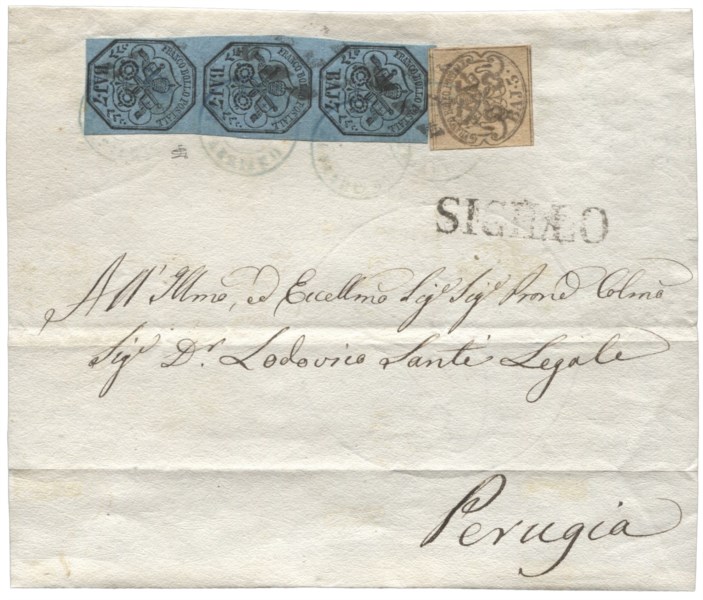 FRANCO BOLLO POSTALE
BAJ 7
FRANCO BOLLO POSTALE
BAJ 7
FRANCO BOLLO POSTALE
BAJ 7
BAJ. 5
SIGILLO
All' Illmo, ed Eccellmo Sig.r Sig.r Prone Colmo
Sig.r D.r Lodovico Santi Legale
Perugia